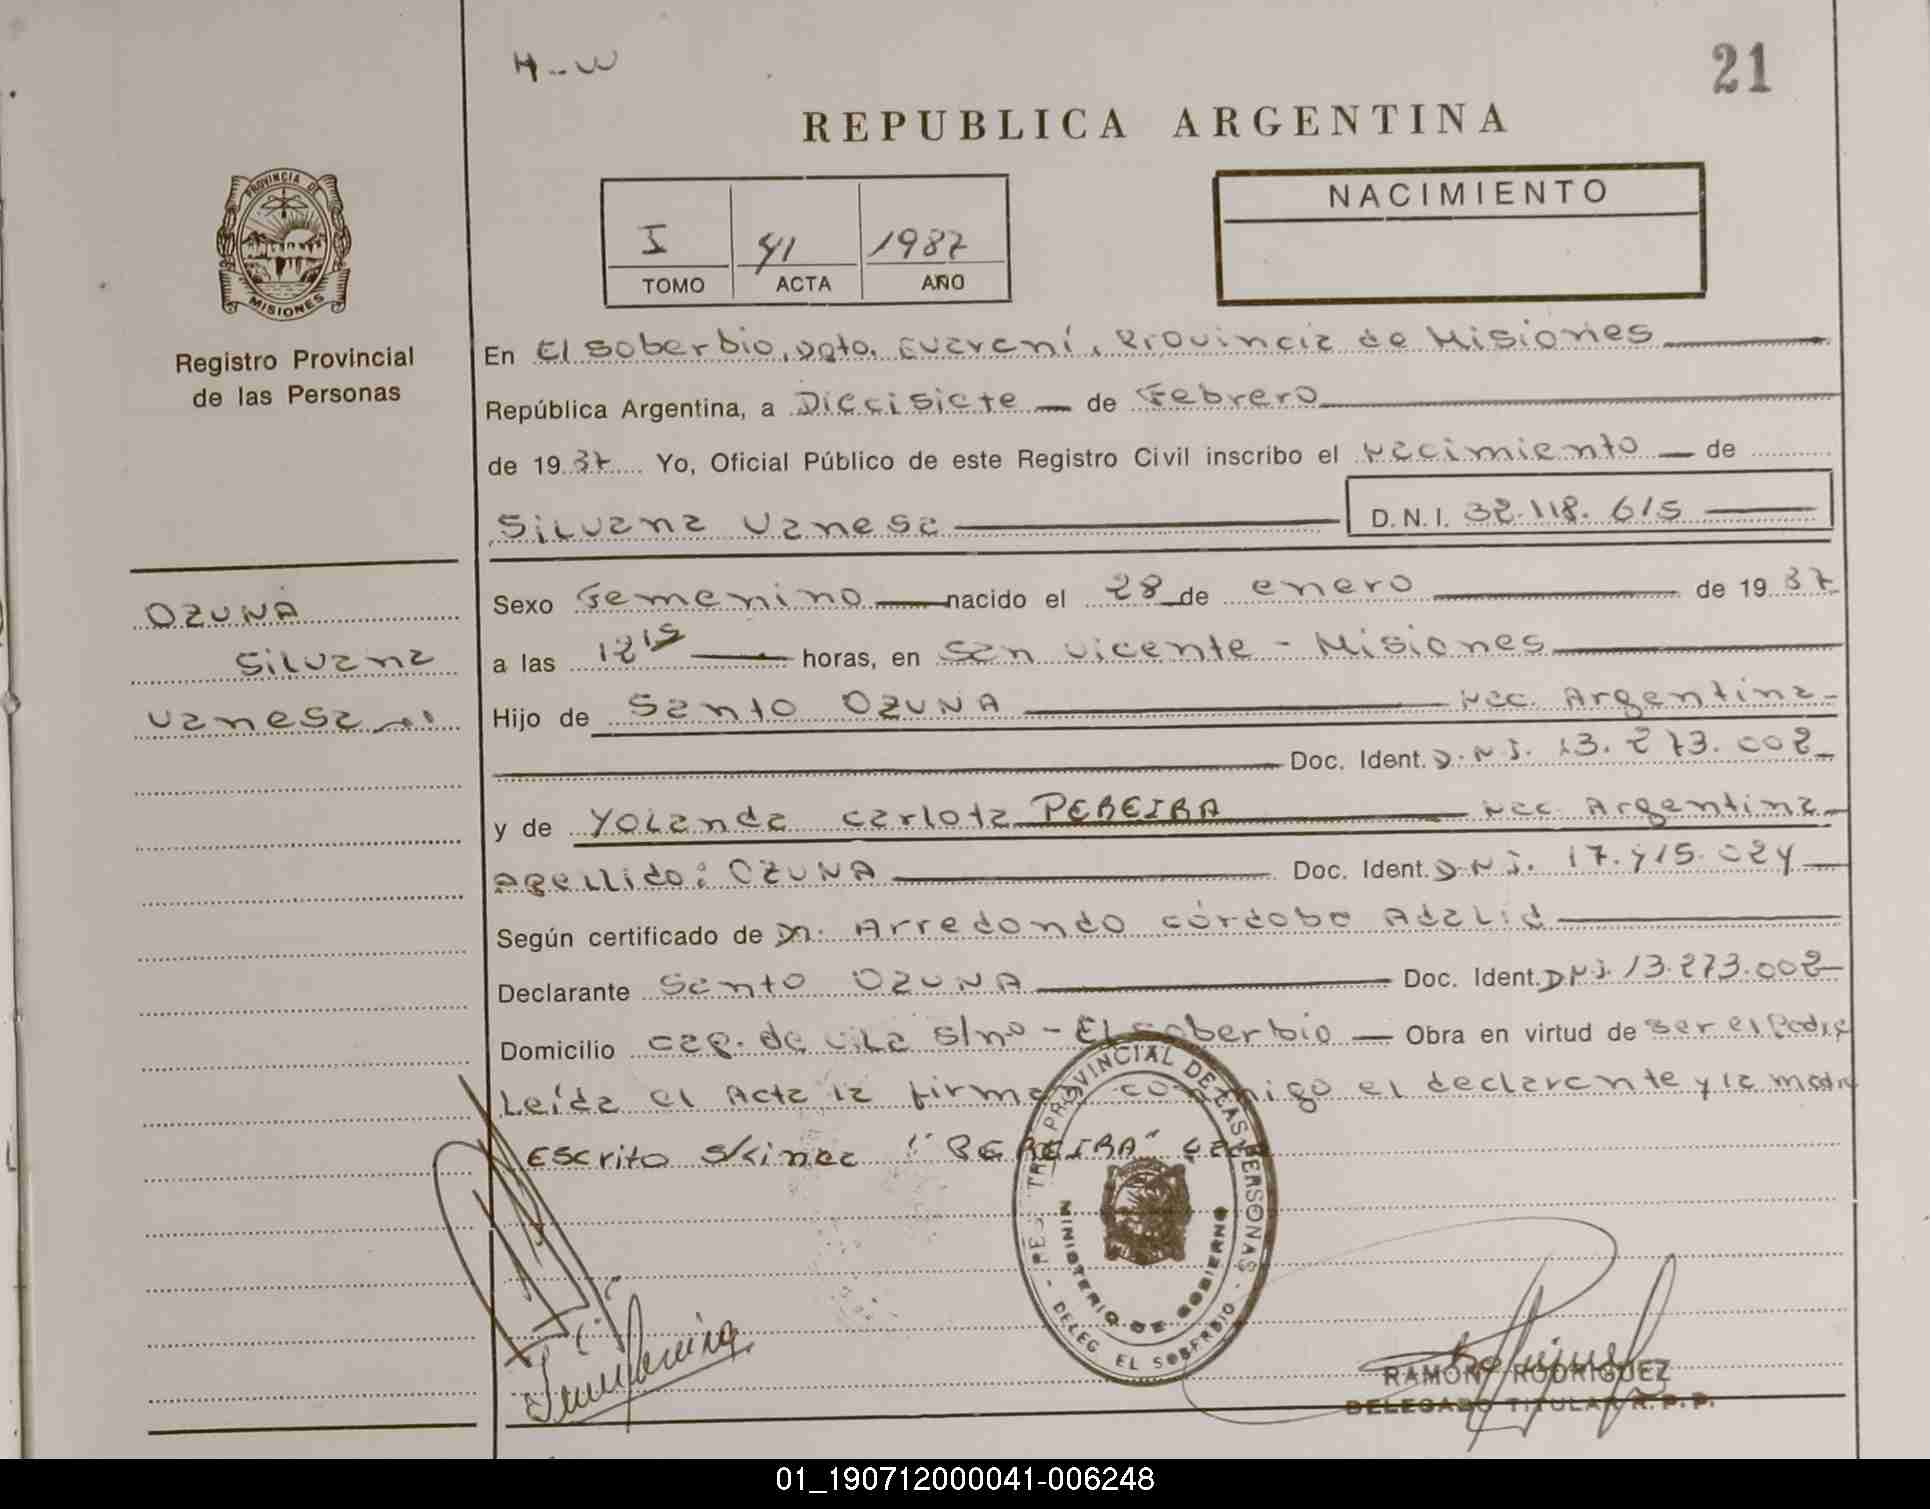 H-W
21
REPUBLICA ARGENTINA
PROVINCIA DE
MISIONES
Registro Provincial
de las Personas
I 41 1987
TOMO ACTA AÑO
NACIMIENTO
En El Soberbio, Dpto. Guaraní, Provincia de Misiones
República Argentina, a Diecisiete de Febrero
de 19 87 Yo, Oficial Público de este Registro Civil inscribo el nacimiento de
Silvana Vanesa D.N.I. 32.118.615
OZUNA
Silvana
Vanesa
Sexo Femenino nacido el 28 de enero de 19 87
a las 12 15 horas, en San Vicente - Misiones
Hijo de Santo OZUNA Nac. Argentina
Doc. Ident. D.N.I. 13.273.002
y de Yolanda Carlota PEREIRA Nac. Argentina
Apellido: OZUNA Doc. Ident. D.N.I. 17.415.024
Según certificado de Dn. Arredondo Córdoba Adalid
Declarante Santo OZUNA Doc. Ident. DNI. 13.273.002
Domicilio Cap. de Vila s/nº - El Soberbio Obra en virtud de ser el Padre
Leída el Acta la firma conmigo el declarante y la madre
Escrito s/linea "PEREIRA" Vale
PROVINCIAL DE LAS PERSONAS
MINISTERIO DE GOBIERNO
DELEG EL SOBERBIO
RAMON RODRIGUEZ
DELEGADO TITULAR R.P.P.
01_190712000041-006248